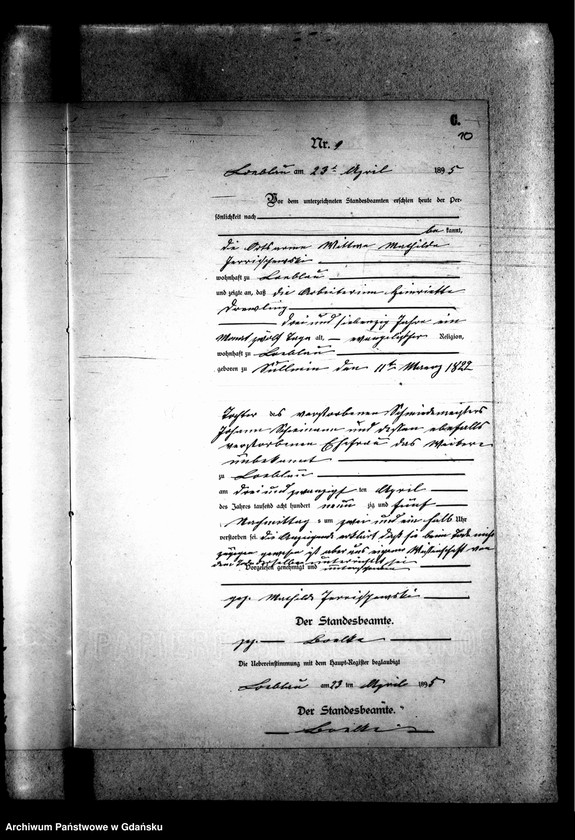 C.
10
Nr. 9
Loeblau am 23t April 1895
Vor dem unterzeichneten Standesbeamten erschien heute der Per-
sönlichkeit nach
be kannt,
die Ortsarme Wittwe Mathilde
wohnhaft zu Loeblau
und zeigte an, daß die Arbeiterin Henriette
Drewling
drei und siebenzig Jahre ein
Monat zwölf Tage alt, evangelischer Religion,
wohnhaft zu Loeblau
geboren zu Süllmin den 11ten Maerz 1822
Tochter des verstorbenen Schmiedemeisters
Johann und dessen ebenfalls
verstorbenen Ehefrau das Weitere
unbekannt
zu Loeblau
am drei und zwanzigsten April
des Jahres tausend acht hundert neun zig und fünf
Nachmittags um zwei und ein halb Uhr
verstorben sei. die Anzeigende erklärt daß sie beim Tode nicht
zugegen gewesen ist aber aus eigener Wissenschaft von
dem Tode derselben unterrichtet sei
Vorgelesen, genehmigt und unterschrieben
gez. Mathilde
Der Standesbeamte.
gez. Boelke
Die Uebereinstimmung mit dem Haupt-Register beglaubigt
Loeblau am 23 ten April 1895
Der Standesbeamte.
Boelke
Archiwum Państwowe w Gdańsku